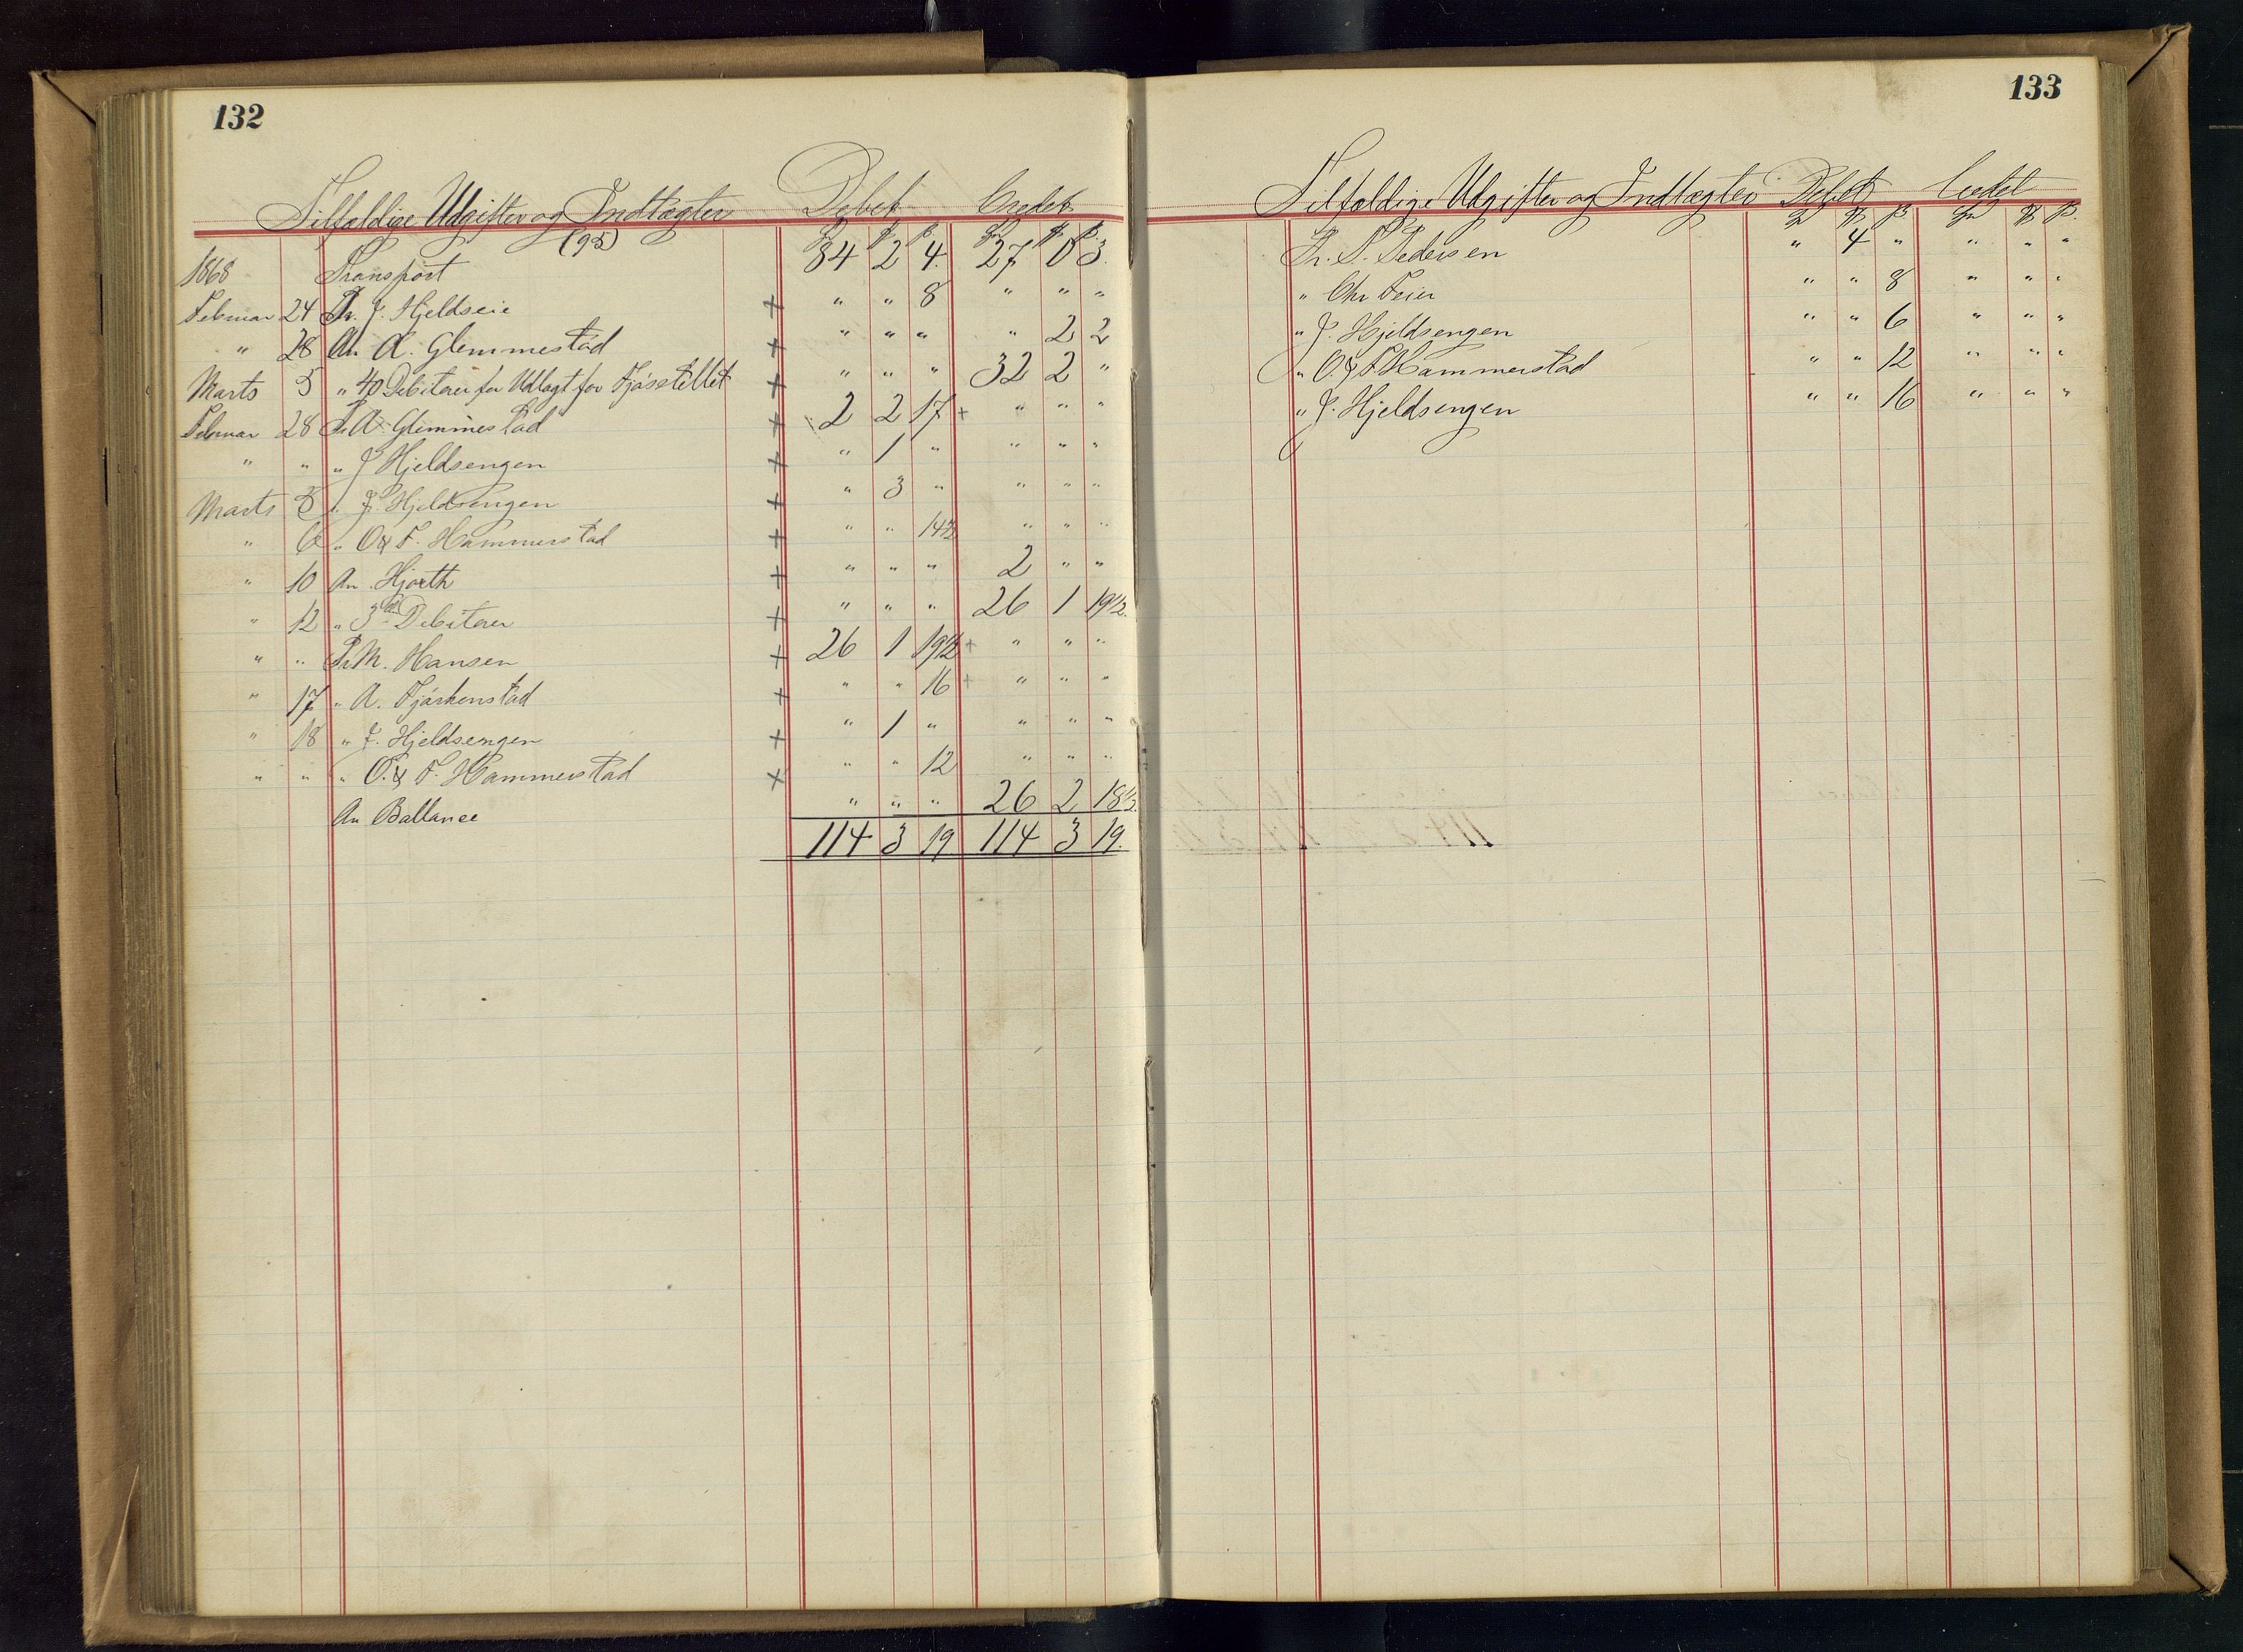 132
Tilfældige Udgifter og Indtægter Debet Credet
(95)
1868 Transport 84 2 4. 27 0 3.
Februar 24 Pr. J. Hjeldseie + " " 8 " " "
" 28 An A. Glemmestad + " " " " 2 2
Marts 5 " 40 Debitorer for Udlagt for Fjösstellet + " " " 32 2 "
Februar 28 Pr A. Glemmestad + 2 2 17 + " " "
" " " J Hjeldsengen + " 1 " " " "
Marts 5 " J. Hjeldsengen + " 3 " " " "
" 6 " O & F. Hammerstad + " " 14½ " " "
" 10 An. Hjorth + " " " 2 " "
" 12 " 3 Debitorer + " " " 26 1 19½.
" " Pr M. Hansen + 26 1 19½ + " " "
" 17 " A. Fjärkenstad + " " 16 + " " "
" 18 " J. Hjeldsengen + " 1 " " " "
" " " O. & F. Hammerstad + " " 12 " " "
An Ballance " " " 26 2 18½.
114 3 19 114 3 19.
133
Tilfældige Udgifter og Indtægter Debet Credet
Pr. S. Pedersen " 4 " " " "
" Chr Feier " " 8 " " "
" J. Hjeldsengen " " 6 " " "
" O. & F. Hammerstad " " 12 " " "
" J. Hjeldsengen " " 16 " " "